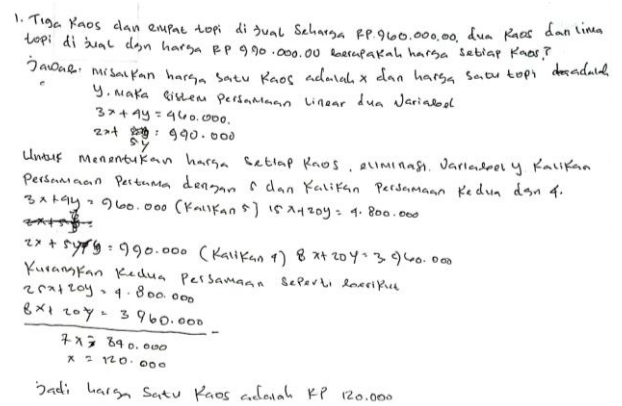 1. Tiga Kaos dan empat topi di jual seharga RP.960.000,00, dua Kaos dan lima
topi di jual dgn harga RP 990.000.00 berapakah harga setiap Kaos?
Jawab: misalkan harga satu Kaos adalah x dan harga satu topi adalah
y. maka sistem persamaan linear dua variabel
3x + 4y = 960.000.
2x + 5y = 990.000
Untuk menentukan harga setiap Kaos, eliminasi variabel y Kalikan
Persamaan Pertama dengan 5 dan Kalikan Persamaan Kedua dgn 4.
3x + 4y = 960.000 (Kalikan 5) 15x + 20y = 4.800.000
2x + 5y = 990.000 (Kalikan 4) 8x + 20y = 3 960.000
Kurangkan Kedua Persamaan seperti berikut
25x + 20y = 4.800.000
8x + 20y = 3 960.000 -
7x = 840.000
x = 120.000
Jadi harga satu Kaos adalah RP 120.000